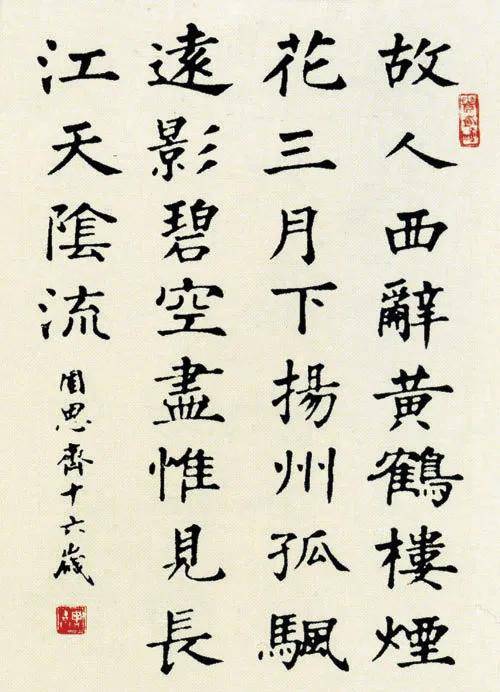 故人西辭黃鶴樓煙
花三月下揚州孤颿
遠影碧空盡惟見長
江天陰流
周思齊十六歲